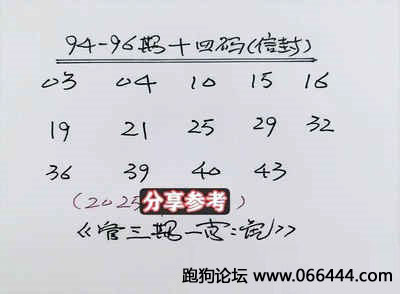 94-96期十四码(信封)
03 04 10 15 16
19 21 25 29 32
36 39 40 43
(2025 分享参考 )
《管三期一定
跑狗论坛 www.066444.com